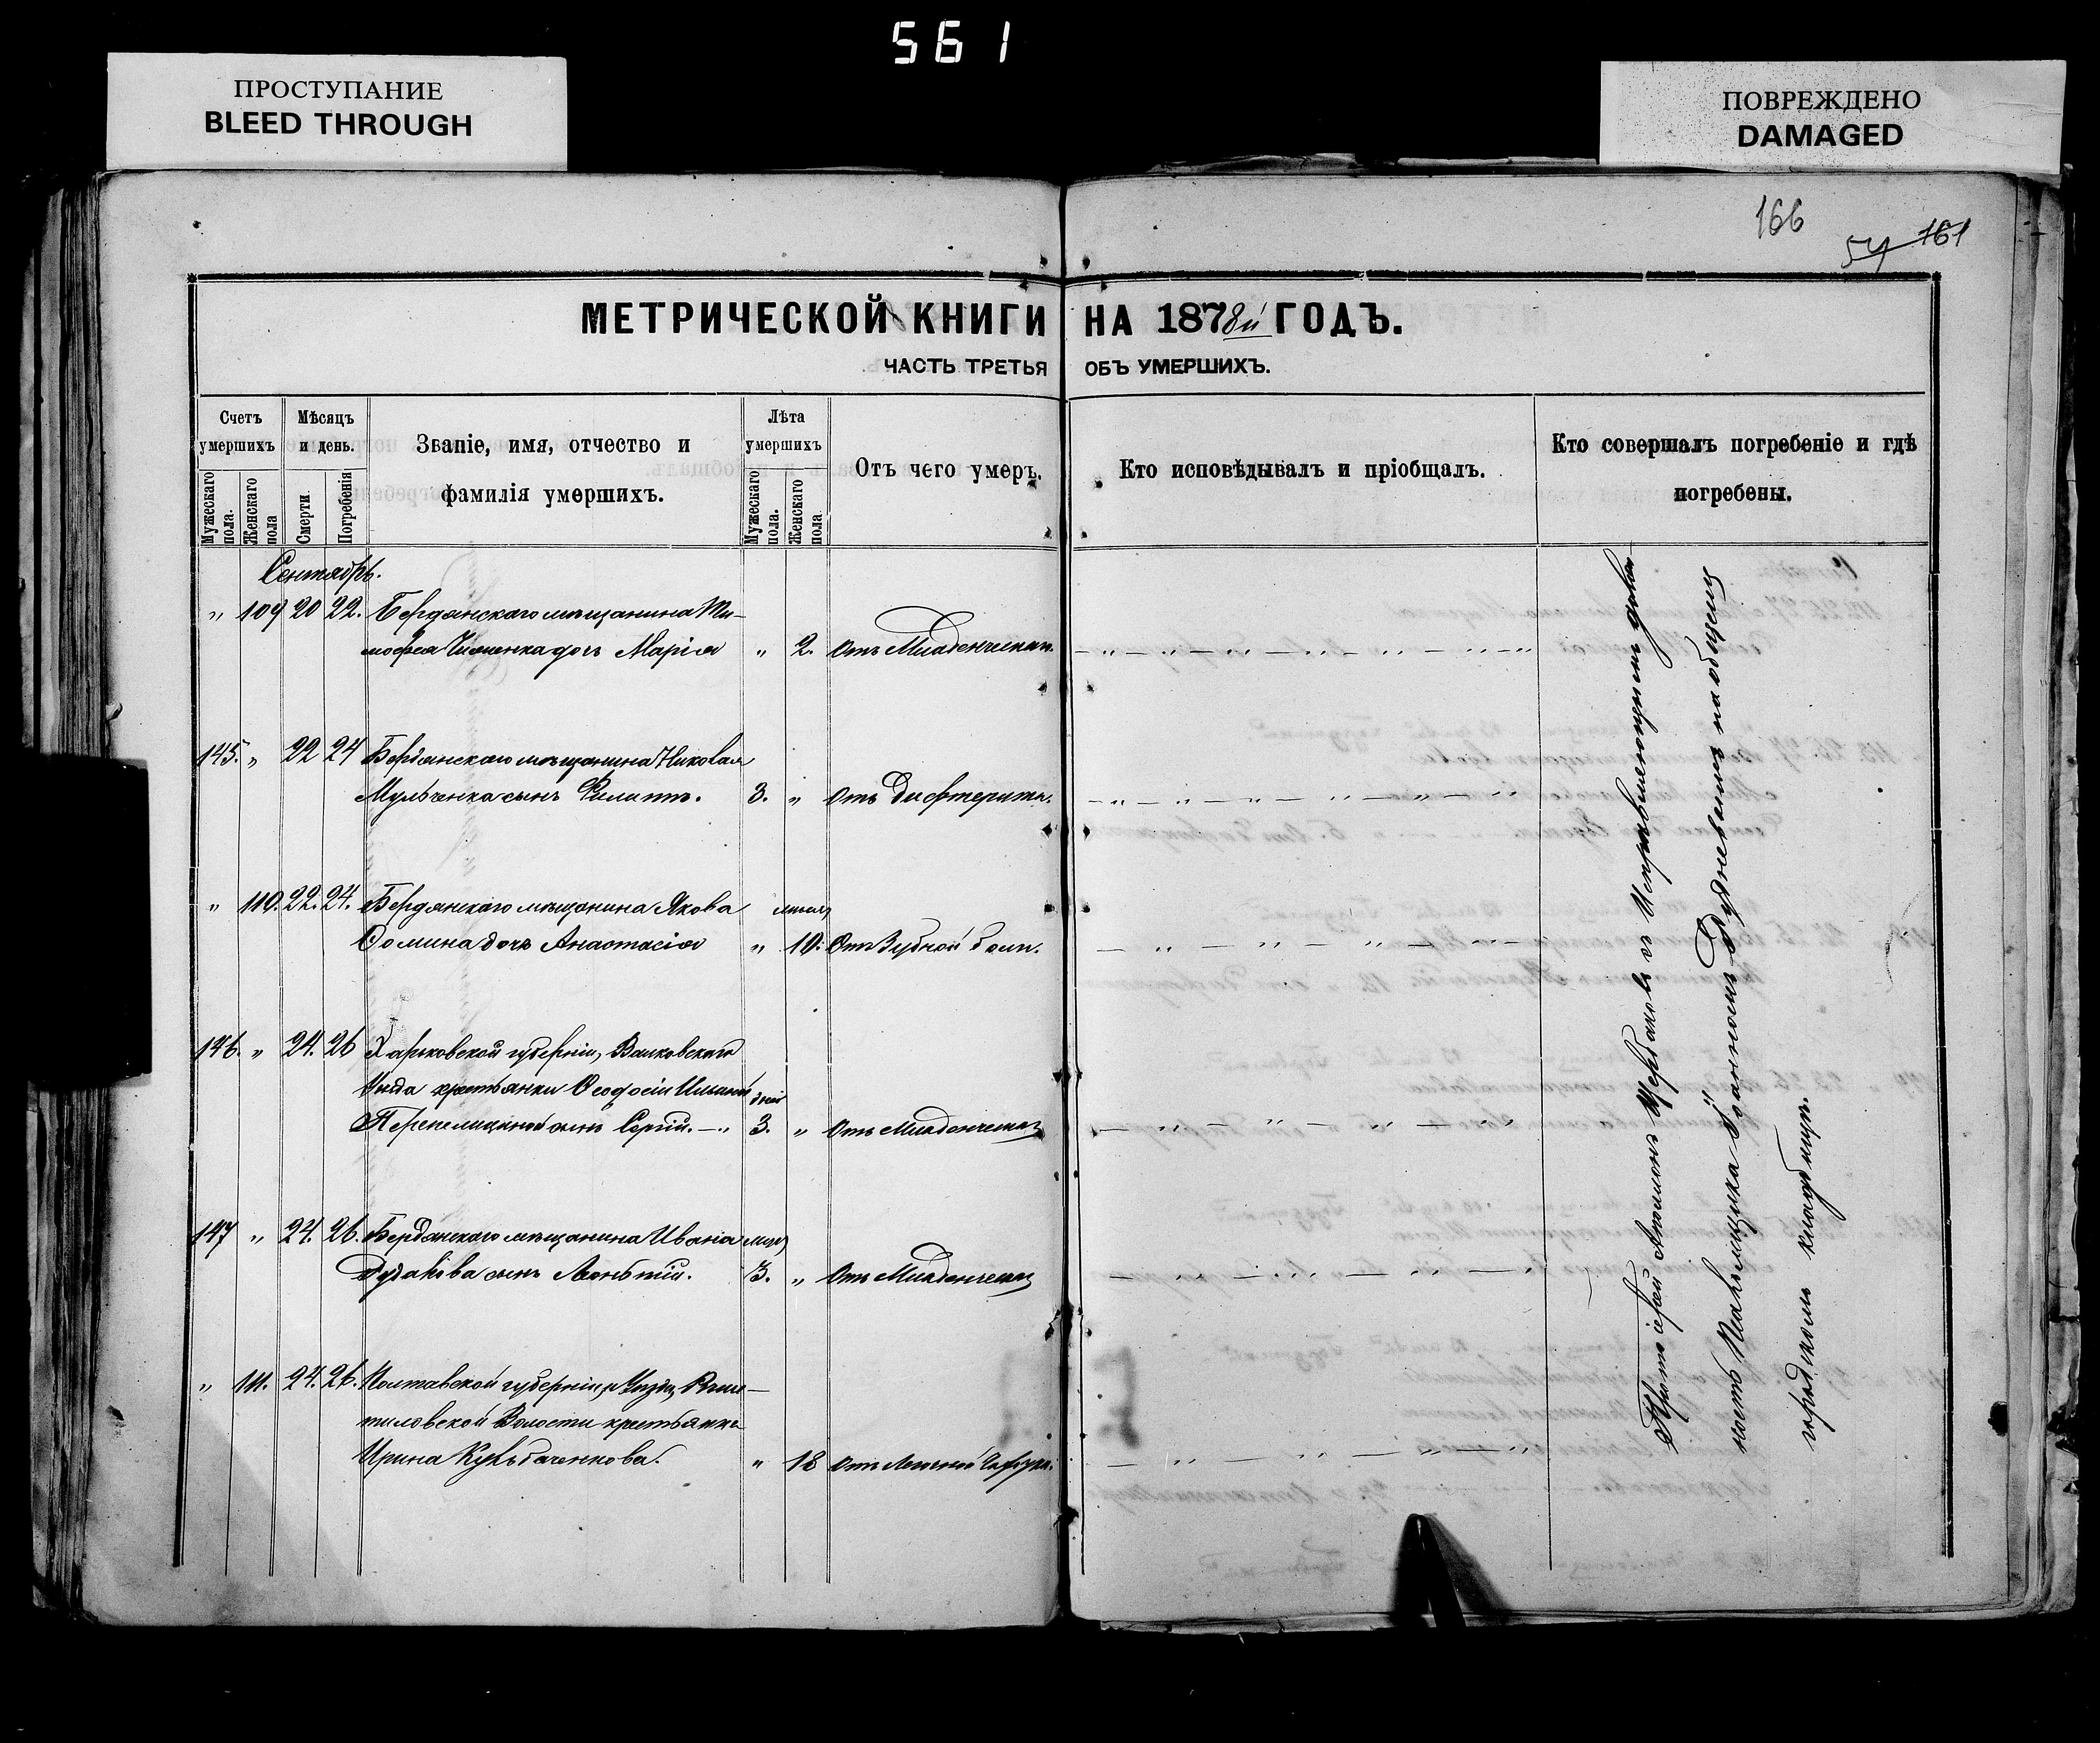 561
ПРОСТУПАНИЕ
BLEED THROUGH
ПОВРЕЖДЕНО
DAMAGED
166
54 161
МЕТРИЧЕСКОЙ КНИГИ НА 1878й ГОДЪ.
ЧАСТЬ ТРЕТЬЯ ОБЪ УМЕРШИХЪ.
Счетъ умершихъ
Мужескаго пола.
Женскаго пола
Мѣсяцъ и день.
Смерти.
Погребенія
Званіе, имя, отчество и
фамилія умершихъ.
Лѣта умершихъ
Мужескаго пола.
Женскаго пола
Отъ чего умеръ.
Кто исповѣдывалъ и пріобщалъ.
Кто совершалъ погребеніе и гдѣ
погребены.
Сентябрь.
" 109 20 22. Бердянскаго мѣщанина Ти-
мофея дочь Марія " 2. Отъ Младенческ.
145. " 22 24 Бердянскаго мѣщанина Николая
Мульченка сынъ Филиппъ. 3. " Отъ Дифтерита.
" 110. 22. 24. Бердянскаго мѣщанина Якова мѣсяц
Ѳомина дочь Анастасія " 10. Отъ Зубной боли.
146. " 24. 26 Харьковской губерніи, Валковскаго
уѣзда крестьянки Ѳеодосіи дней
Перепелицыной сынъ Сергій. — " 3. " Отъ Младенческ
147 " 24. 26. Бердянскаго мѣщанина Ивана мѣсяц
Дудакова сынъ Леонтій. 3. " Отъ Младенческ
" 111. 24. 26. Полтавской губерніи, и Уѣзда,
Волости крестьянка
Ирина Кульбаченкова. " 18 Отъ
Протоіерей Щербаковъ съ Исправляющимъ долж
ность Псаломщика Іоанномъ Рудневымъ на общемъ
городскомъ кладбищѣ.